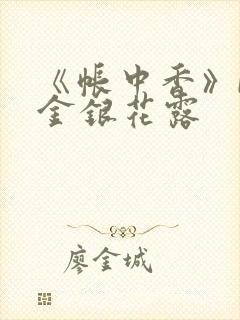 《帳中香》
金銀花露
廖金城